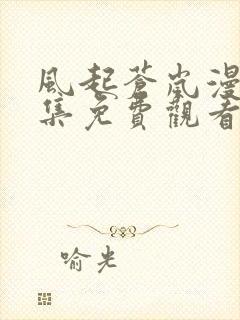 風起蒼嵐漫
集免費觀看
喻光